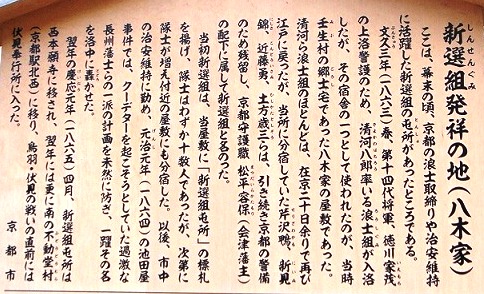 新選組発祥の地（八木家）
しんせんぐみ
ここは、幕末の頃、京都の浪士取締りや治安維持
に活躍した新選組の屯所があったところである。
文久三年（一八六三）春、第十四代将軍、徳川家茂
の上洛警護のため、清河八郎率いる浪士組が入洛
したが、その宿舎の一つとして使われたのが、当時
壬生村の郷士宅であった八木家の屋敷であった。
清河ら浪士組のほとんどは、在京二十日余りで再び
江戸に戻ったが、当所に分宿していた芹沢鴨、新見
錦、近藤勇、土方歳三らは、引き続き京都の警備
のため残留し、京都守護職 松平容保（会津藩主）
の配下に属して新選組と名のった。
当初新選組は、当屋敷に「新選組屯所」の標札
を揚げ、隊士はわずか十数人であったが、次第に
隊士が増え付近の屋敷にも分宿した。以後、市中
の治安維持に勤め、元治元年（一八六四）の池田屋
事件では、クーデターを起こそうとしていた過激な
長州藩士らの一派の計画を未然に防ぎ、一躍その名
を洛中に轟かせた。
翌年の慶応元年（一八六五）四月、新選組屯所は
西本願寺に移され、翌年には更に南の不動堂村
（京都駅北西）に移り、鳥羽・伏見の戦いの直前には
伏見奉行所に入った。
京都市